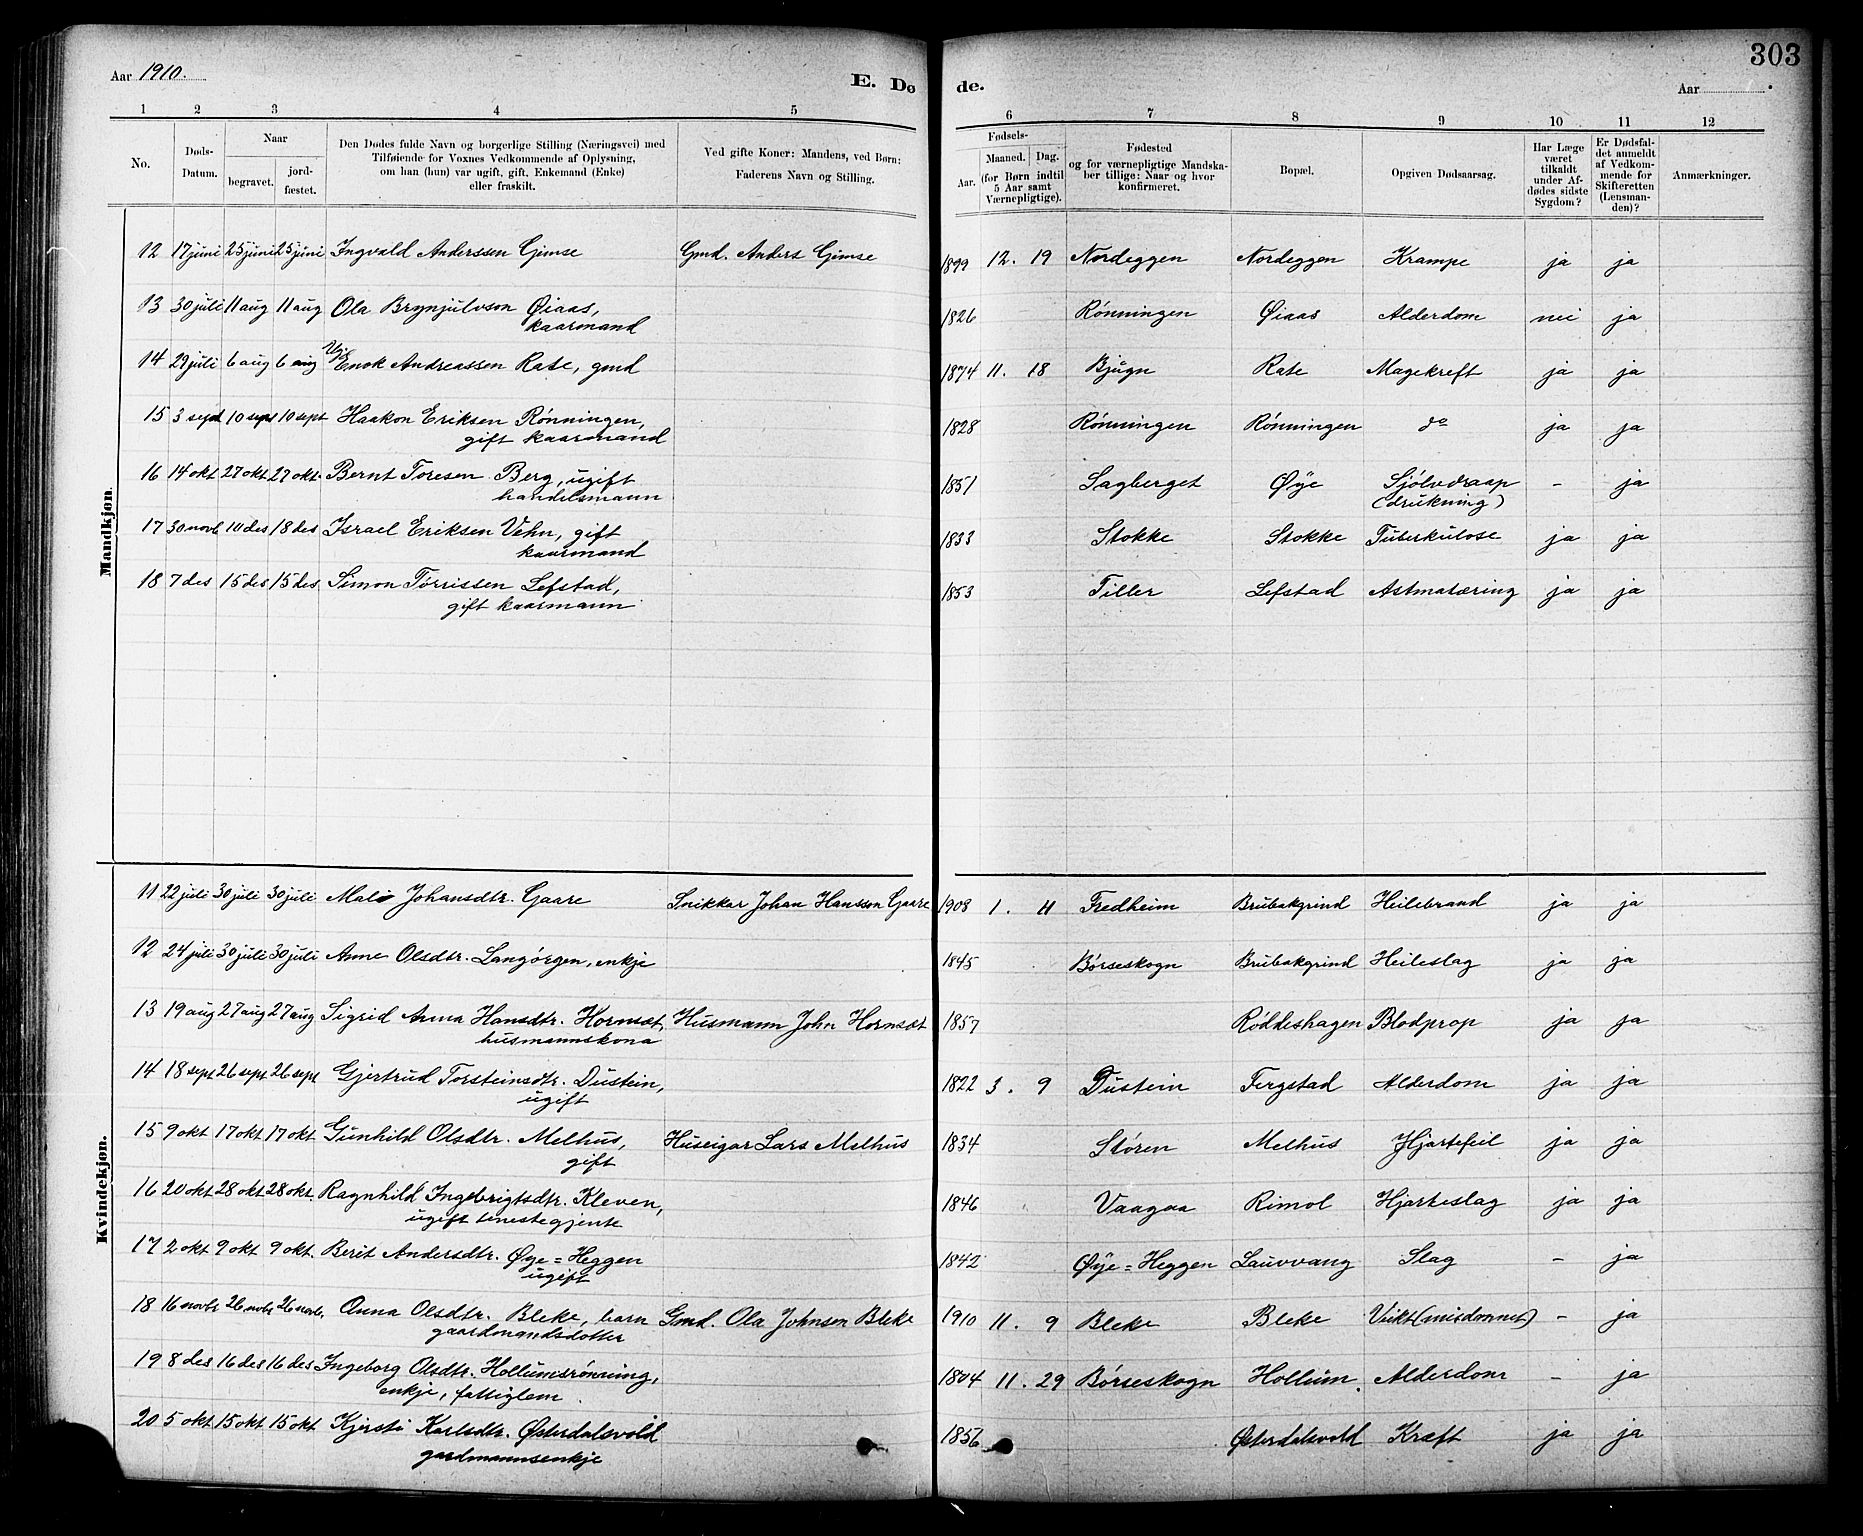 Aar 1910.
E. Dø
de.
303
Aar
1 2 3 4 5 6 7 8 9 10 11 12
No.
Døds-Datum.
Naar
begravet.
jord-fæstet.
Den Dødes fulde Navn og borgerlige Stilling (Næringsvei) med
Tilføiende for Voxnes Vedkommende af Oplysning,
om han (hun) var ugift, gift, Enkemand (Enke)
eller fraskilt.
Ved gifte Koner: Mandens, ved Børn:
Faderens Navn og Stilling.
Fødsels-
Aar. Maaned. Dag.
(for Børn indtil
5 Aar samt
Værnepligtige).
Fødested
og for værnepligtige Mandska-
ber tillige: Naar og hvor
konfirmeret.
Bopæl.
Opgiven Dødsaarsag.
Har Læge
været
tilkaldt
under Af-
dødes sidste
Sygdom?
Er Dødsfal-
det anmeldt
af Vedkom-
mende for
Skifteretten
(Lensman-
den)?
Anmærkninger.
Mandkjøn.
12 17 juni 25 juni 25 juni Ingvald Anderssen Gimse Gmd. Anders Gimse 1899 12. 19 Nordeggen Nordeggen Krampe ja ja
13 30 juli 11 aug 11 aug Ola Brynjulvson Øiaas, 1826 Rønningen Øiaas Alderdom nei ja
kaarmand
14 29 juli 6 aug 6 aug Ugi Enok Andreassen Rate, gmd 1874 11. 18 Bjugn Rate Magekreft ja ja
15 3 sept 10 sept 10 sept Haakon Eriksen Rønningen, 1828 Rønningen Rønningen do ja ja
gift kaarmand
16 14 okt 27 okt 27 okt. Bernt Toresen Berg, ugift 1851 Sagberget Øye Sjølvdraap - ja
handelsmann (drukning)
17 30 novb 10 des 18 des Israel Eriksen Vehn, gift 1833 Stokke Stokke Tuberkulose ja ja
kaarmand
18 7 des 15 des 15 des Simon Tørrissen Lefstad, 1853 Tiller Lefstad Astmatæring ja ja
gift kaarmann
Kvindekjøn.
11 22 juli 30 juli 30 juli Mali Johansdtr. Gaare Snikkar Johan Hansson Gaare 1908 1. 11 Fredheim Brubakgrind Heilebrand ja ja
12 24 juli 30 juli 30 juli Anne Olsdtr. Langørgen, enkje 1845 Børseskogn Brubakgrind Heileslag ja ja
13 19 aug 27 aug 27 aug Sigrid Anna Hansdtr. Hornsæt, Husmann John Hornsæt 1857 Røddeshagen Blodprop ja ja
husmannskona
14 18 sept 26 sept 26 sept Gjertrud Torsteinsdtr. Dustein, 1822 3. 9 Dustein Fergstad Alderdom ja ja
ugift
15 9 okt 17 okt 17 okt Gunhild Olsdtr. Melhus, Huseigar Lars Melhus 1834 Støren Melhus Hjartefeil ja ja
gift
16 20 okt 28 okt 28 okt. Ragnhild Ingebrigtsdtr. Kleven, 1846 Vaagaa Rimol Hjarteslag ja ja
ugift tenestegjente
17 2 okt 9 okt 9 okt. Berit Andersdtr. Øye=Heggen 1842 Øye=Heggen Lauvvang Slag - ja
ugift
18 16 novbr 26 novbr 26 novbr. Anna Olsdtr. Bleke, barn Gmd. Ola Johnsen Bleke 1910 11. 9 Bleke Bleke Veikt (misdannet) - ja
gaardmandsdotter
19 8 des 16 des 16 des Ingeborg Olsdtr. Hollumsrønning, 1804 11. 29 Børseskogn Hollum. Alderdom - ja
enkje, fattiglem.
20 5 okt 15 okt 15 okt Kjersti Karlsdtr. Østerdalsvold 1856 Østerdalsvold Kræft ja ja
gardmannsenkje